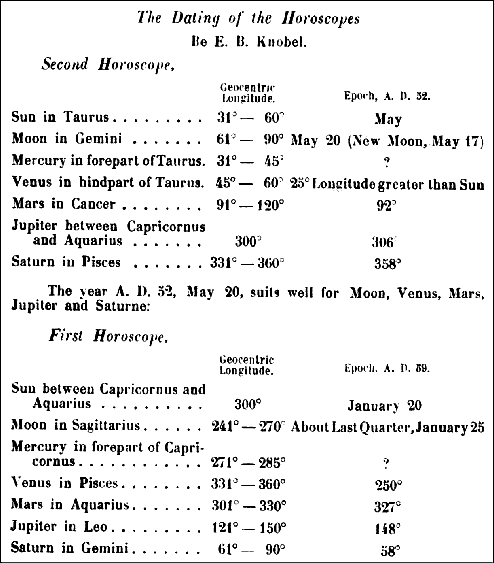 The Dating of the Horoscopes
Be E. B. Knobel.
Second Horoscope,
Geocentric Longitude. Epoch, A. D. 52.
Sun in Taurus . . . . . . . . . 31° — 60° May
Moon in Gemini . . . . . . . 61° — 90° May 20 (New Moon, May 17)
Mercury in forepart of Taurus. 31° — 45° ?
Venus in hindpart of Taurus. 45° — 60° 25° Longitude greater than Sun
Mars in Cancer . . . . . . . . 91° — 120° 92°
Jupiter between Capricornus
and Aquarius . . . . . . . 300° 306
Saturn in Pisces . . . . . . . 331° — 360° 358°
The year A. D. 52, May 20, suits well for Moon, Venus, Mars,
Jupiter and Saturne:
First Horoscope.
Geocentric Longitude. Epoch, A. D. 59.
Sun between Capricornus and
Aquarius . . . . . . . . . . 300° January 20
Moon in Sagittarius . . . . . . 241° — 270° About Last Quarter, January 25
Mercury in forepart of Capri-
cornus . . . . . . . . . . . . 271° — 285° ?
Venus in Pisces . . . . . . . . 331° — 360° 250°
Mars in Aquarius . . . . . . . 301° — 330° 327°
Jupiter in Leo . . . . . . . . . 121° — 150° 148°
Saturn in Gemini . . . . . . . 61° — 90° 58°